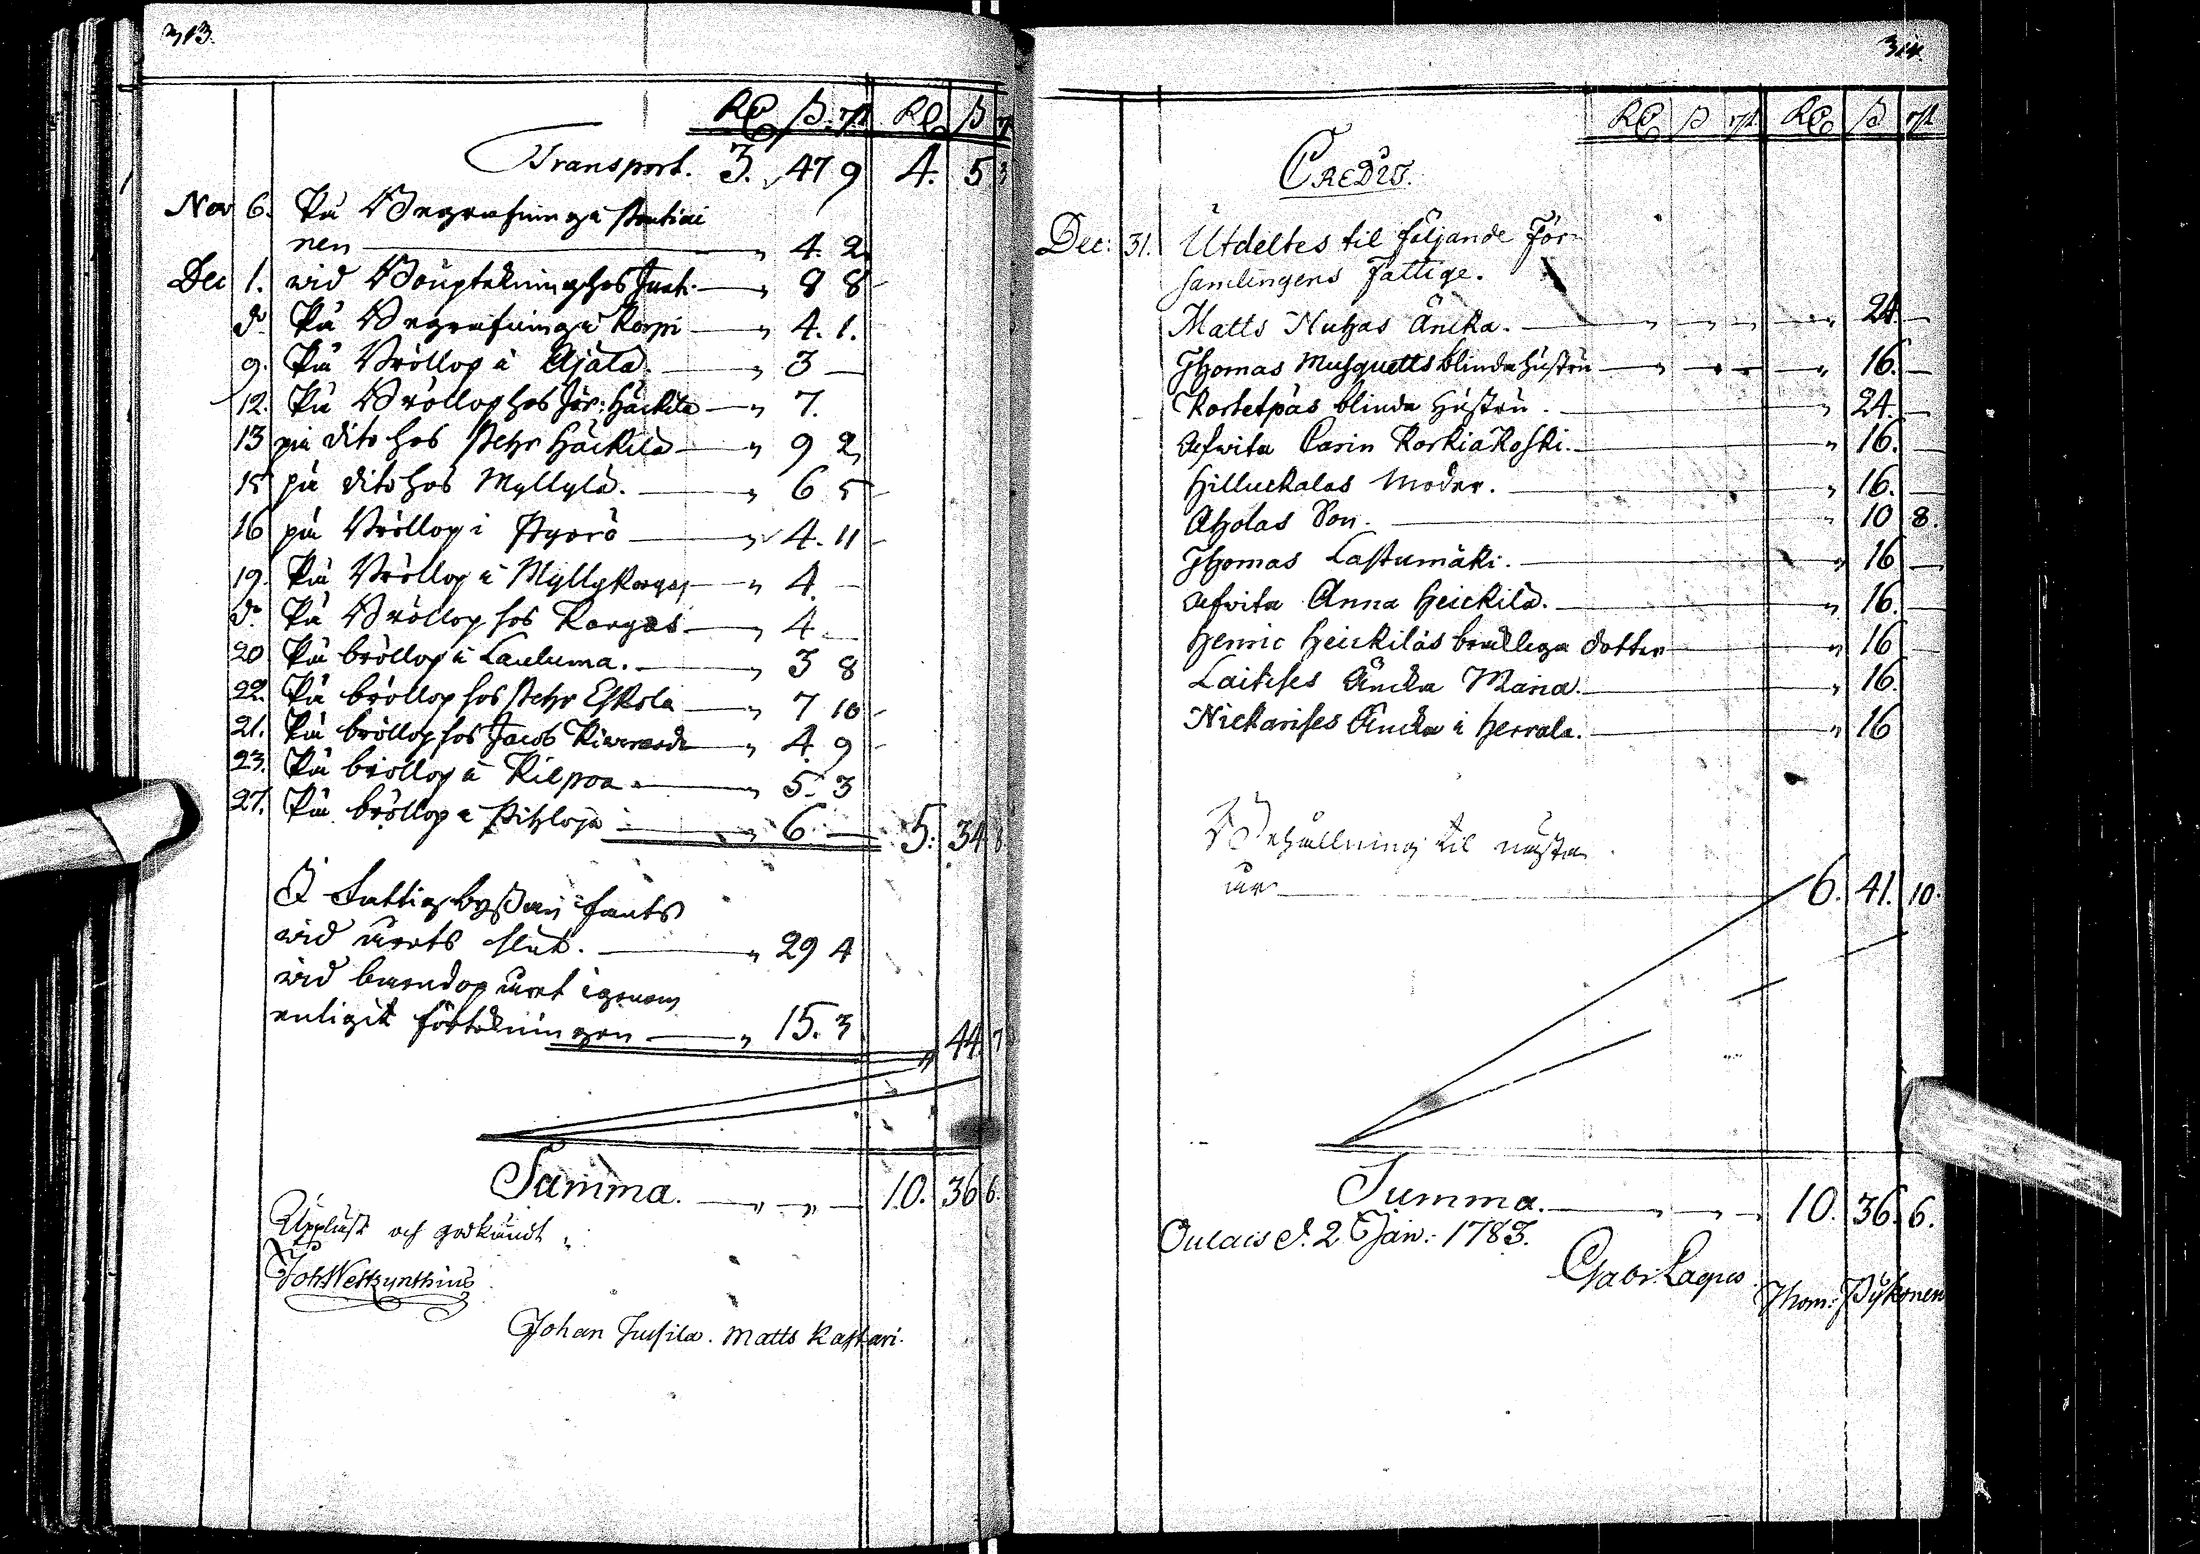 313.
Rd ß rst Rd ß r
Transport. 3. 47 9 4. 5 3
Nov 6. På Begrafning i
nen — " 4. 2
Dec 1. wid Bouptekning hos Junt. — " 8 8
d:o På Begrafning i Korpi — " 4. 1.
9. På Bröllop i Ajala. — " 3 —
12. På Bröllop hos Jör: Häckilä — " 7.
13 på dito hos Petr Häckilä — " 9 2
15 på dito hos Myllylä. — " 6 5
16 på Bröllop i Pyörö — " 4. 11
19. På Bröllop i Myllykangas — " 4. —
d:o På Bröllop hos Kangas — " 4 —
20 På bröllop i Lauluma. — " 3 8
22. På bröllop hos Petr Eskola — " 7 10
21. På bröllop hos Jacob — " 4. 9
23. På bröllop i Kilpoa — " 5. 3
27. På bröllop i Pihloja — " 6. — 5. 34 8
I Fattigbyssan fants
wid årets slut. — " 29 4
wid barndop året igenom
enligit förtekningen — " 15. 3 " 44. 7
Summa. — " — " — 10. 36 6.
Upläst och godkändt
Joh Westzynthius
Johan Jussila. Matts Kastari.
314.
Rd ß rst Rd ß rst
CREDIT.
Dec: 31. Utdeltes til följande För-
samlingens Fattige.
Matts Nuhas Äncka. — 24. —
Thomas Musquetts blinda hustru — " 16. —
Korhetpäs blinda Hustru. — " 24. —
Afwita Carin Korkiakoski. — " 16. —
Hilluckalas Moder. — " 16. —
Aholas Son. — " 10 8.
Thomas Lastumäki. — " 16 —
Afwita Anna Heickilä. — " 16. —
Henric Heickiläs bräcklega dotter — " 16 —
Laitises Äncka Maria. — " 16.
Nickarises Äncka i Herrala. — " 16
Behållning til nästa
år — 6. 41. 10.
Summa. — " — " — 10. 36. 6.
Oulais d. 2 Jan: 1783.
Gabr. Lagus
Thom: Pykönen